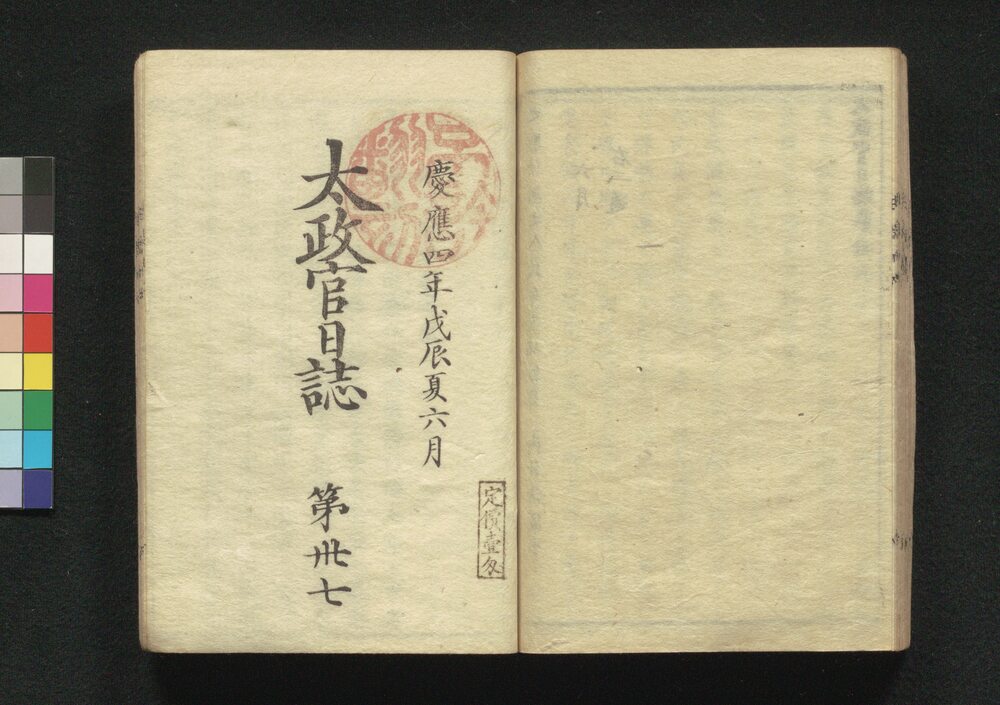 慶應四年戊辰夏六月
太政官日誌 第卅七
定價壹匁